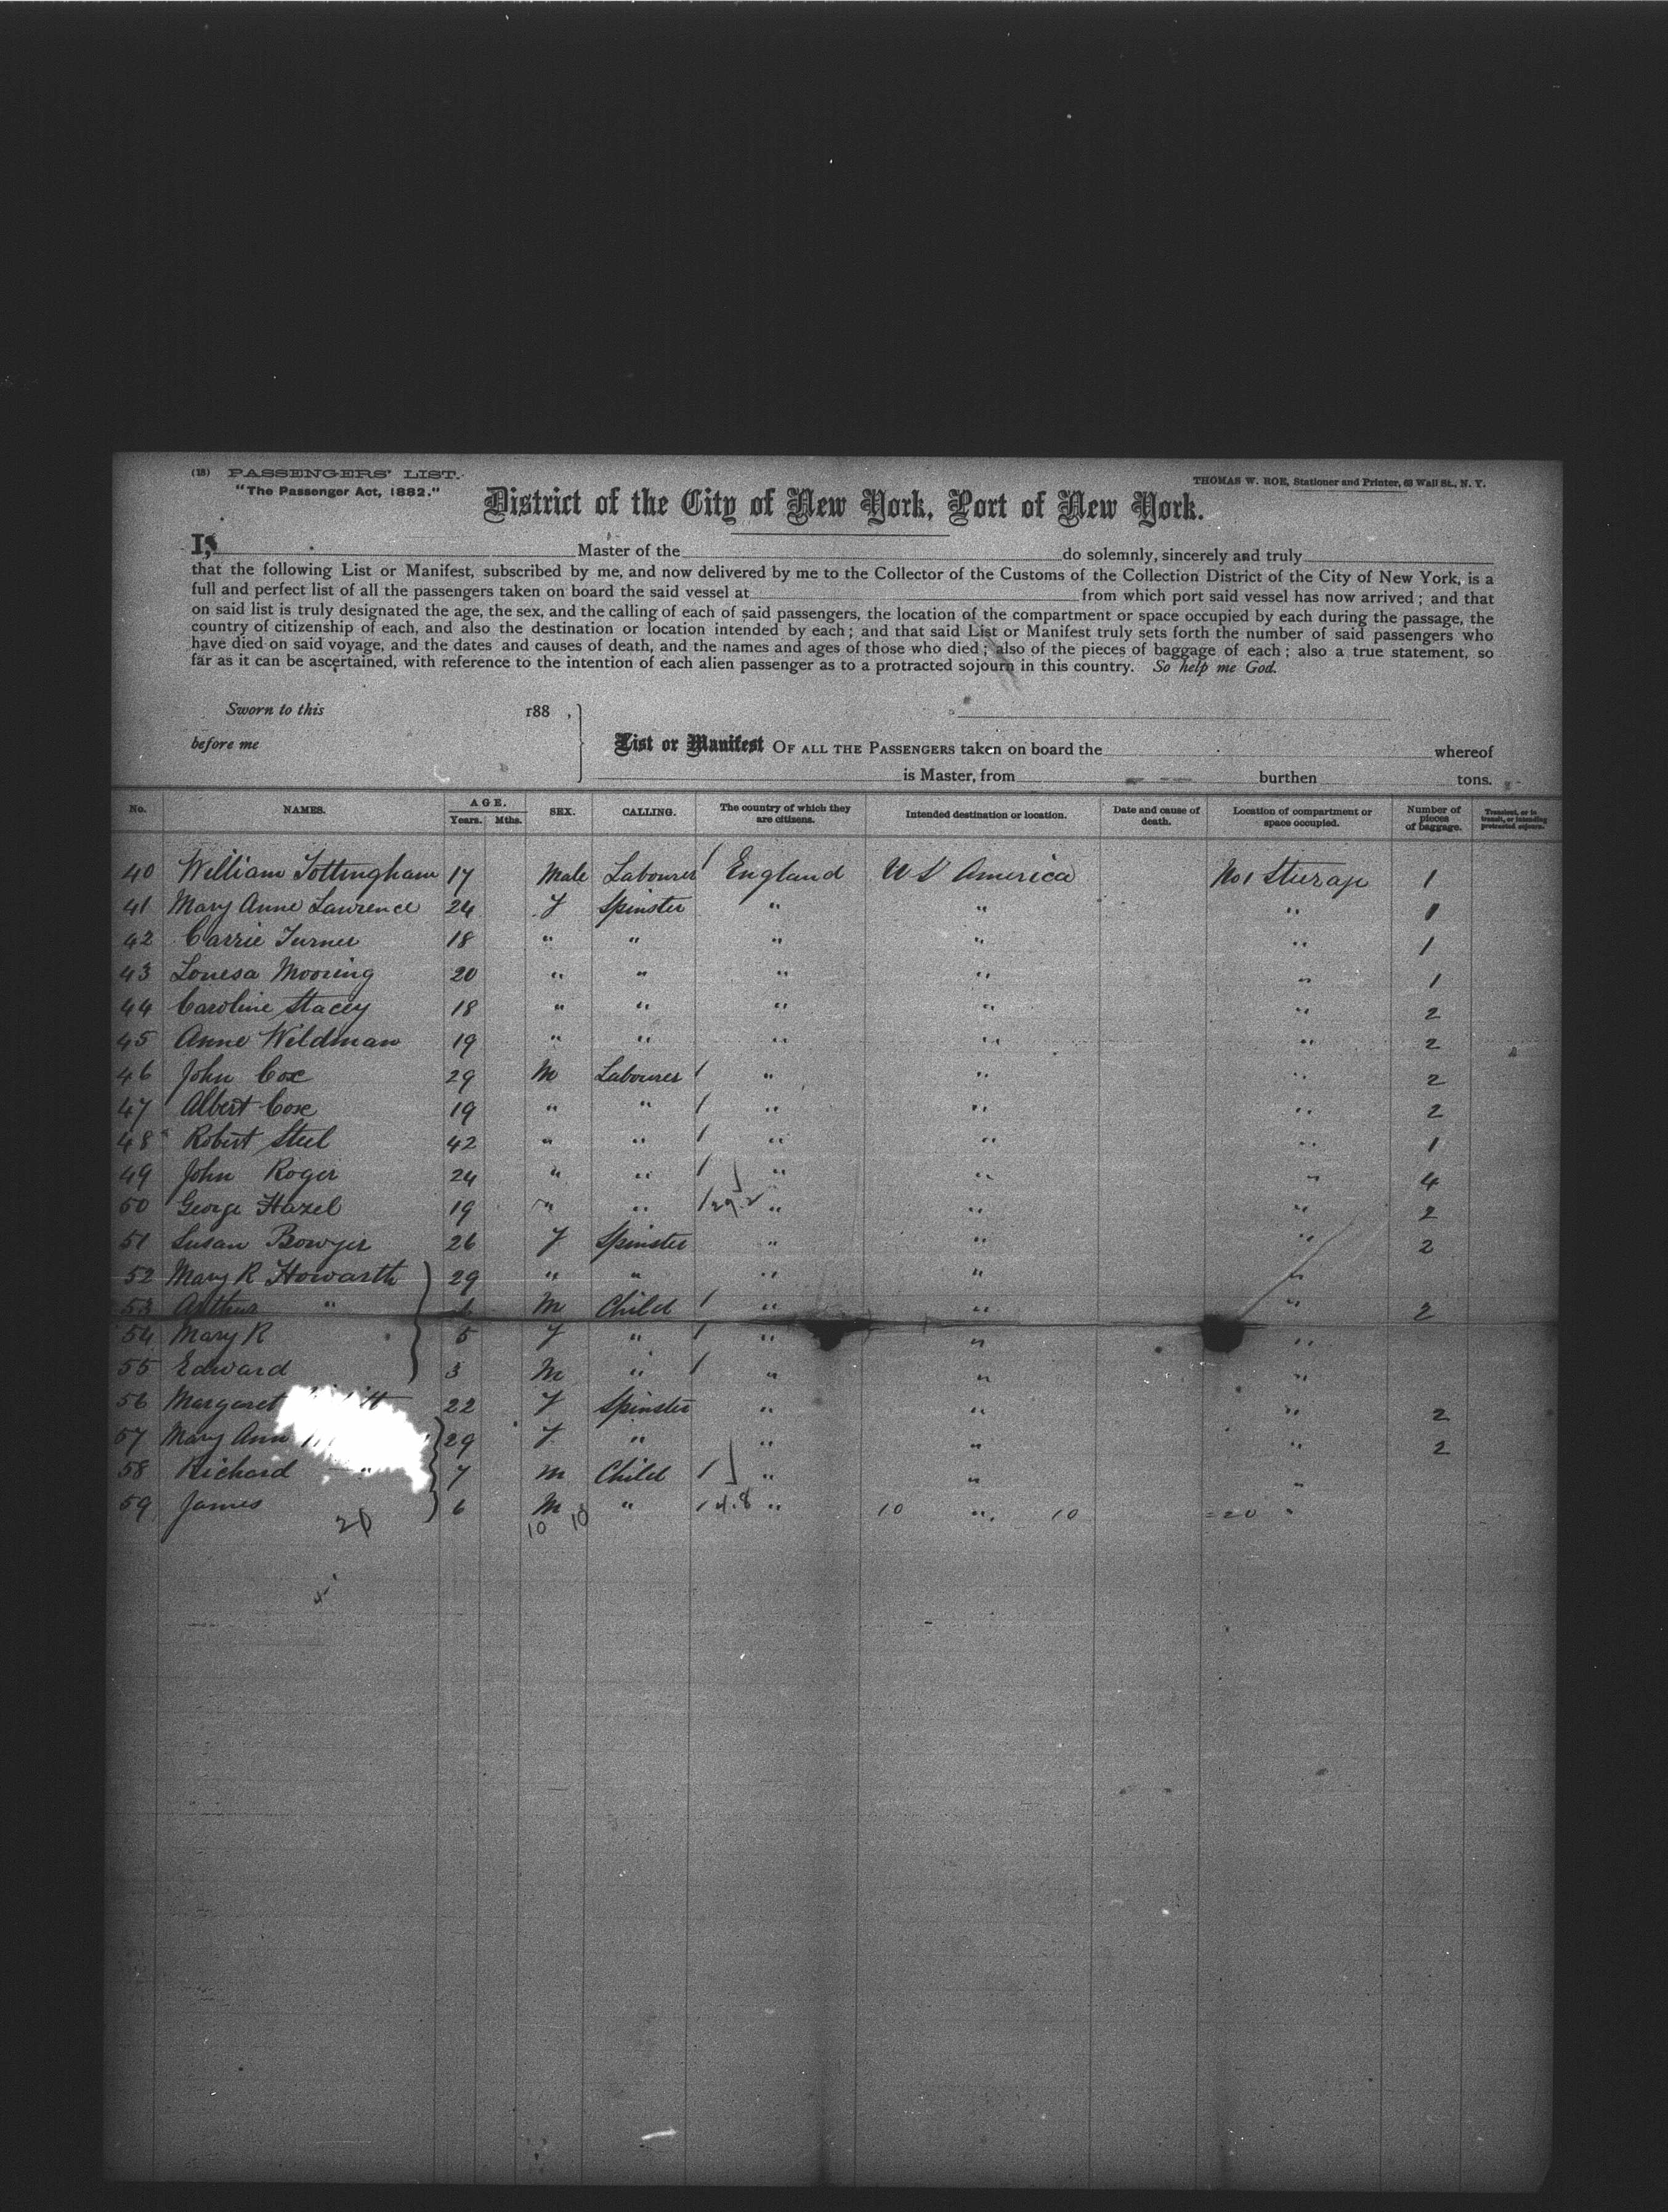 (18) PASSENGERS' LIST.
"The Passenger Act, 1882."
THOMAS W. ROE, Stationer and Printer, 63 Wall St., N. Y.
District of the City of New York, Port of New York.
I, Master of the do solemnly, sincerely and truly
that the following List or Manifest, subscribed by me, and now delivered by me to the Collector of the Customs of the Collection District of the City of New York, is a
full and perfect list of all the passengers taken on board the said vessel at from which port said vessel has now arrived; and that
on said list is truly designated the age, the sex, and the calling of each of said passengers, the location of the compartment or space occupied by each during the passage, the
country of citizenship of each, and also the destination or location intended by each; and that said List or Manifest truly sets forth the number of said passengers who
have died on said voyage, and the dates and causes of death, and the names and ages of those who died; also of the pieces of baggage of each; also a true statement, so
far as it can be ascertained, with reference to the intention of each alien passenger as to a protracted sojourn in this country. So help me God.
Sworn to this 188 ,
before me
List or Manifest OF ALL THE PASSENGERS taken on board the whereof
is Master, from burthen tons.
No. NAMES. AGE. Years. Mths. SEX. CALLING. The country of which they are citizens. Intended destination or location. Date and cause of death. Location of compartment or space occupied. Number of pieces of baggage. Transient, or in transit, or intending protracted sojourn.
40 William Tottingham 17 Male Labourer / England U S America No 1 Steerage 1
41 Mary Anne Lawrence 24 F Spinster " " " 1
42 Carrie Turner 18 " " " " " 1
43 Louesa Mooring 20 " " " " " 1
44 Caroline Stacey 18 " " " " " 2
45 Anne Wildman 19 " " " " " 2
46 John Cox 29 M Labourer / " " " 2
47 Albert Cox 19 " " / " " " 2
48 Robert Steel 42 " " / " " " 1
49 John Roger 24 " " / " " " 4
50 George Hazel 19 " " / 29.2 " " " 2
51 Susan Bowyer 26 F Spinster " " " 2
52 Mary R Howarth 29 " " " " "
53 Arthur " M Child / " " " 2
54 Mary R 5 F " / " " "
55 Edward 3 M " / " " "
56 Margaret 22 F Spinster " " " 2
57 Mary Ann 29 F " " " " 2
58 Richard " 7 M Child / " " "
59 James 6 M " / 4.8 " 10 " 10 =20 "
20 10 10